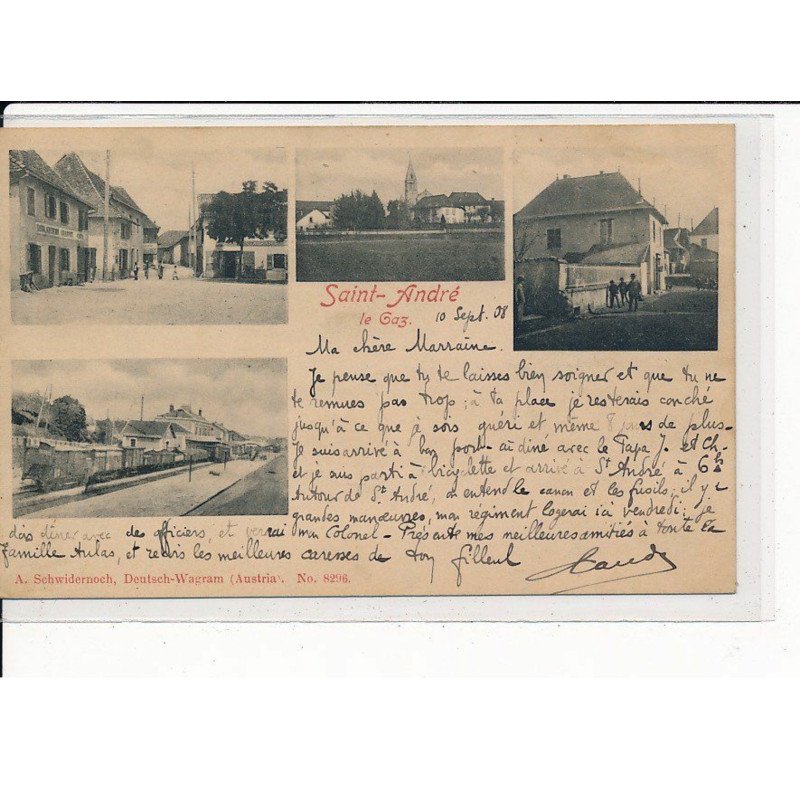 Saint-André
le Gaz.
10 Sept. 08
Ma chère Marraine.
Je pense que tu te laisses bien soigner et que tu ne
te remues pas trop ; à ta place je resterais couché
jusqu'à ce que je sois guéri et même 8 jours de plus-
Je suis arrivé à bon port ai diné avec le Pape J. et Ch-
et je suis parti à bicyclette et arrivé à St André à 6h
Autour de St André, on entend le canon et les fusils; il y a
grandes manœuvres, mon régiment logerai ici vendredi; je
dois diner avec des officiers, et verrai mon Colonel- Présente mes meilleures amitiés à toute la
famille et reçois les meilleures caresses de ton filleul
A. Schwidernoch, Deutsch-Wagram (Austria). No. 8296.